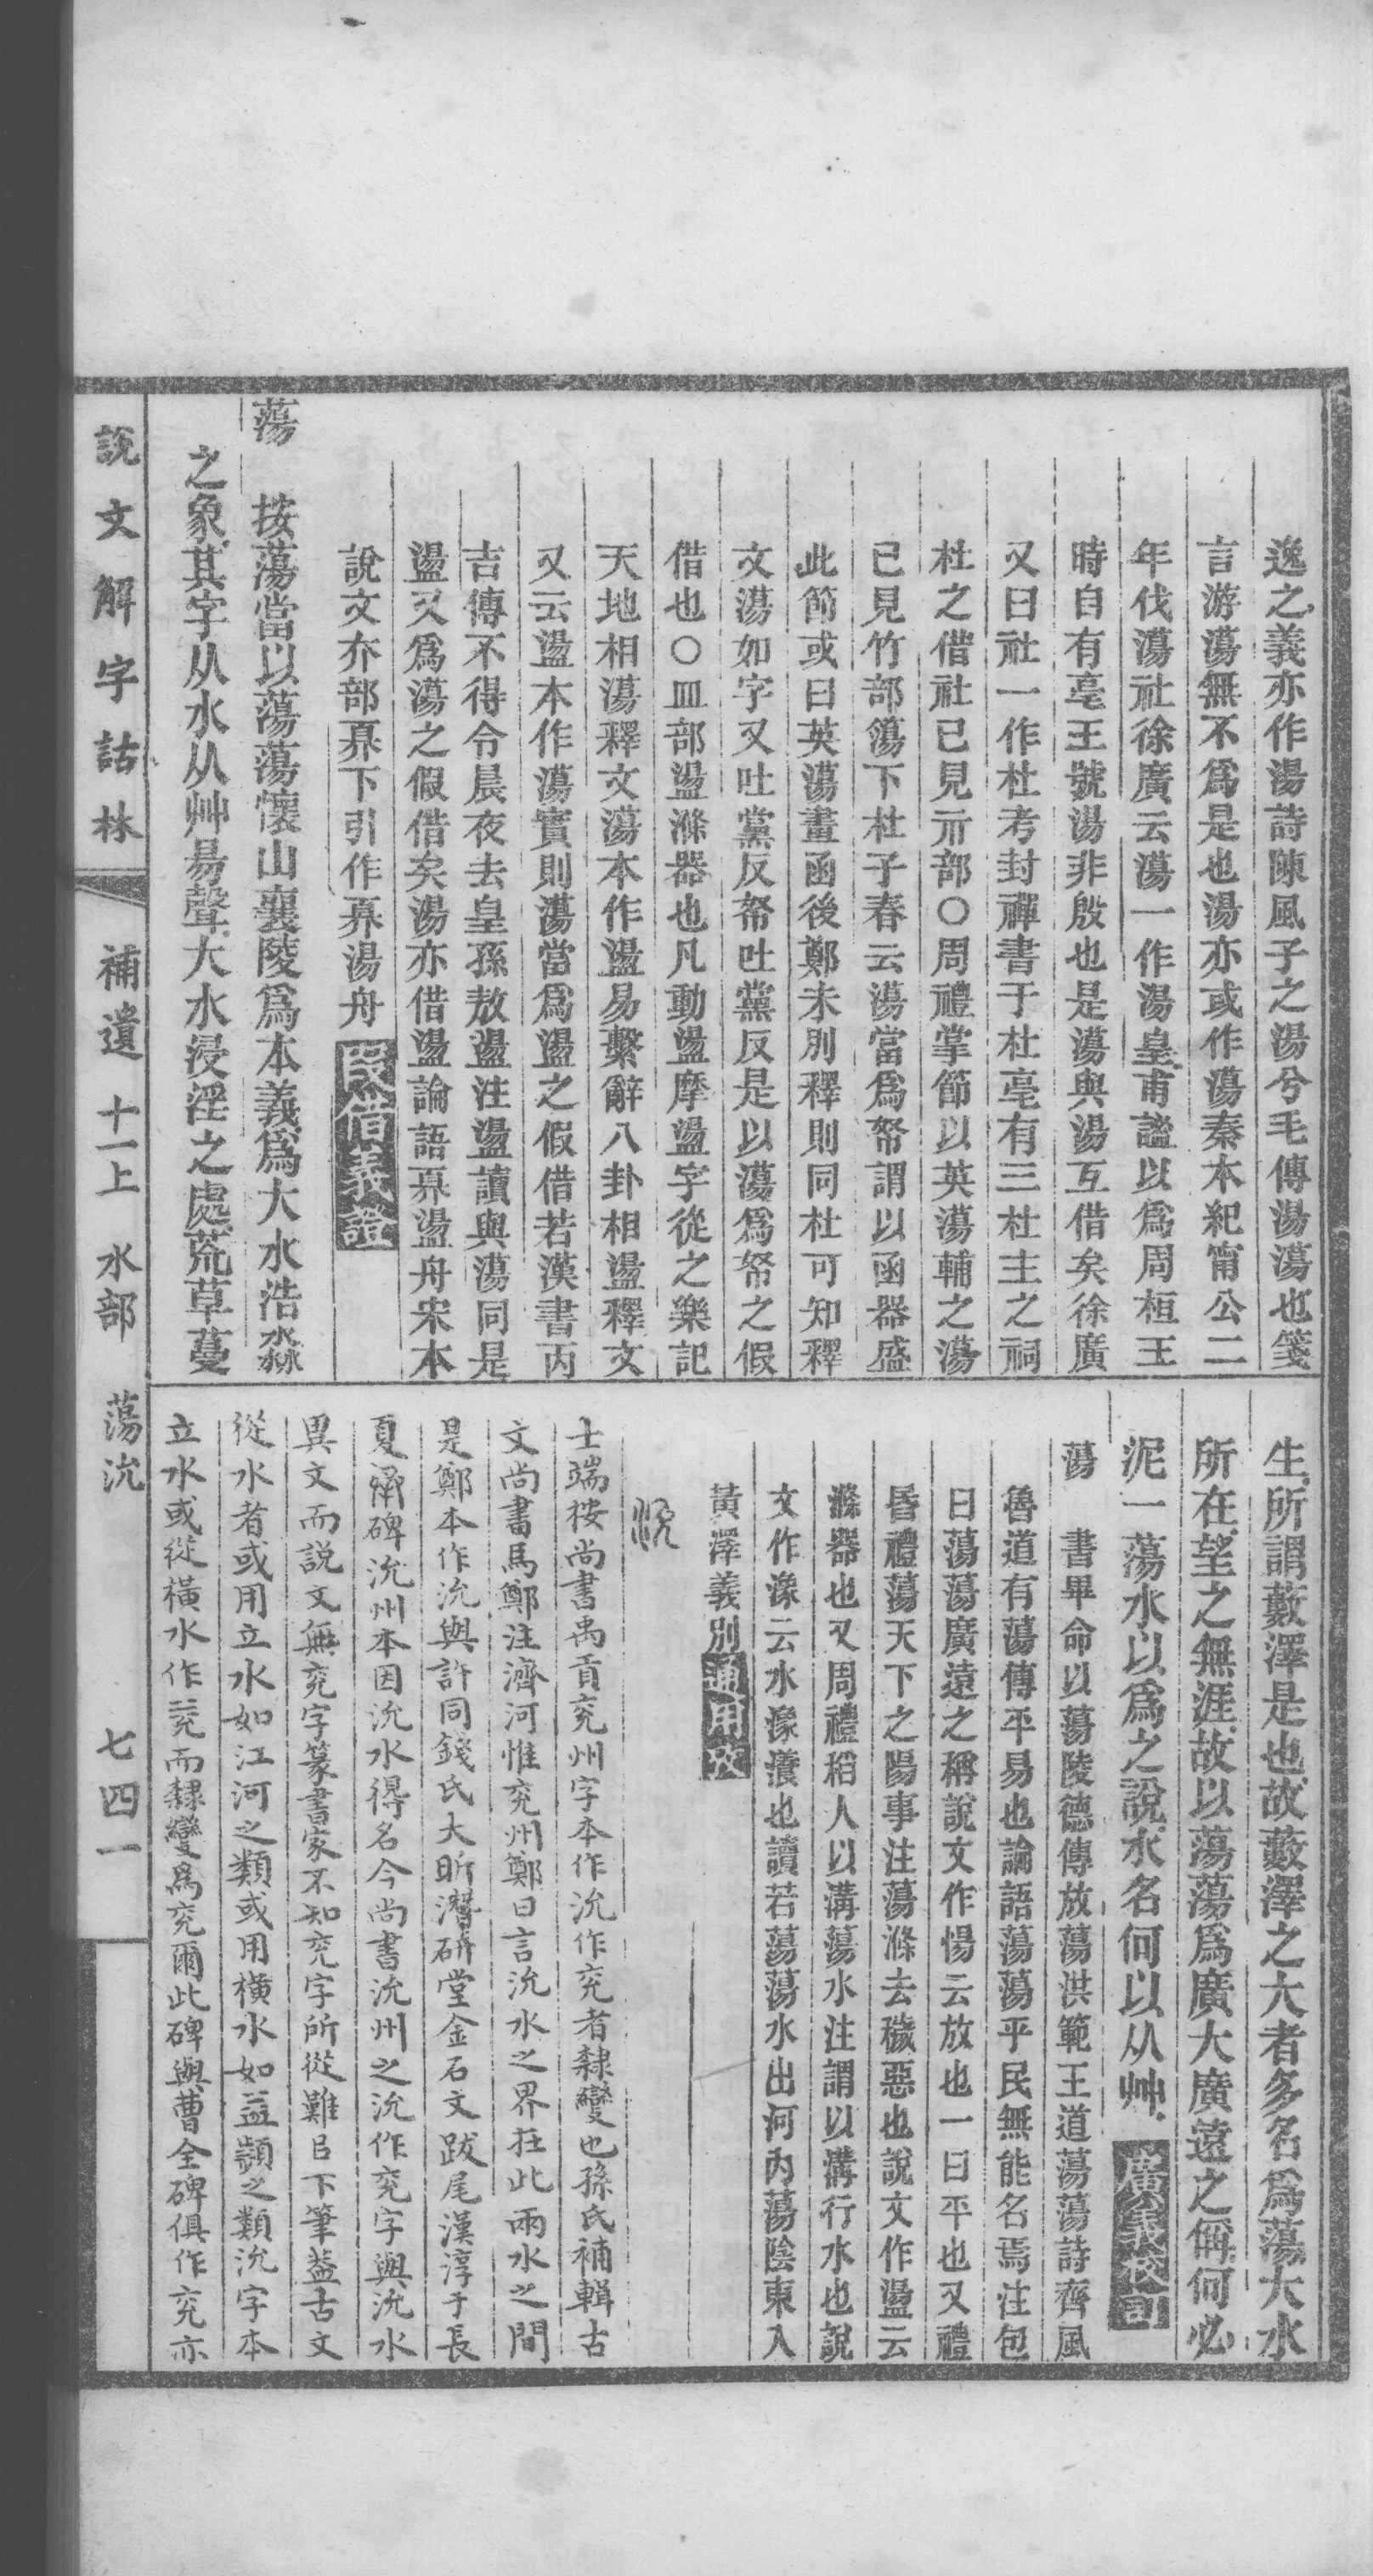 逸之義亦作湯詩陳風子之湯兮毛傳湯蕩也箋
言游蕩無不爲是也湯亦或作蕩秦本紀甯公二
年伐蕩社徐廣云蕩一作湯皇甫謐以爲周桓王
時自有亳王號湯非殷也是蕩與湯互借矣徐廣
又曰社一作杜考封禪書于杜亳有三杜主之祠
杜之借社已見示部○周禮掌節以英蕩輔之蕩
已見竹部簜下杜子春云蕩當爲帑謂以函器盛
此節或曰英蕩畫函後鄭未別釋則同杜可知釋
文蕩如字又吐黨反帑吐黨反是以蕩爲帑之假
借也○皿部盪滌器也凡動盪摩盪字從之樂記
天地相蕩釋文蕩本作盪易繫辭八卦相盪釋文
又云盪本作蕩實則蕩當爲盪之假借若漢書丙
吉傳不得令晨夜去皇孫敖盪注盪讀與蕩同是
盪又爲蕩之假借矣湯亦借盪論語奡盪舟宋本
說文夰部奡下引作奡湯舟 叚借義證
蕩 按蕩當以蕩蕩懷山襄陵爲本義爲大水浩淼
之象其字从水从艸昜聲大水浸淫之處荒草蔓
生所謂藪澤是也故藪澤之大者多名爲蕩大水
所在望之無涯故以蕩蕩爲廣大廣遠之偁何必
泥一蕩水以爲之說水名何以从艸 廣義校訂
蕩 書畢命以蕩陵德傳放蕩洪範王道蕩蕩詩齊風
魯道有蕩傳平易也論語蕩蕩乎民無能名焉注包
曰蕩蕩廣遠之稱說文作愓云放也一曰平也又禮
昏禮蕩天下之陽事注蕩滌去穢惡也說文作盪云
滌器也又周禮稻人以溝蕩水注謂以溝行水也說
文作潒云水潒瀁也讀若蕩蕩水出河內蕩陰東入
黃澤義別 通用攷
沇
士端桉尚書禹貢兖州字本作沇作兖者隸變也孫氏補輯古
文尚書馬鄭注濟河惟兖州鄭曰言沇水之界在此兩水之間
是鄭本作沇與許同錢氏大昕潛研堂金石文跋尾漢淳于長
夏承碑沇州本因沇水得名今尚書沇州之沇作兖字與沇水
異文而説文無兖字篆書家不知兖字所從難㠯下筆葢古文
從水者或用立水如江河之類或用橫水如益顥之類沇字本
立水或從橫水作兖而隸變爲兖爾此碑與曹全碑俱作兖亦
說文解字詁林 補遺 十一上 水部 蕩沇 七四一